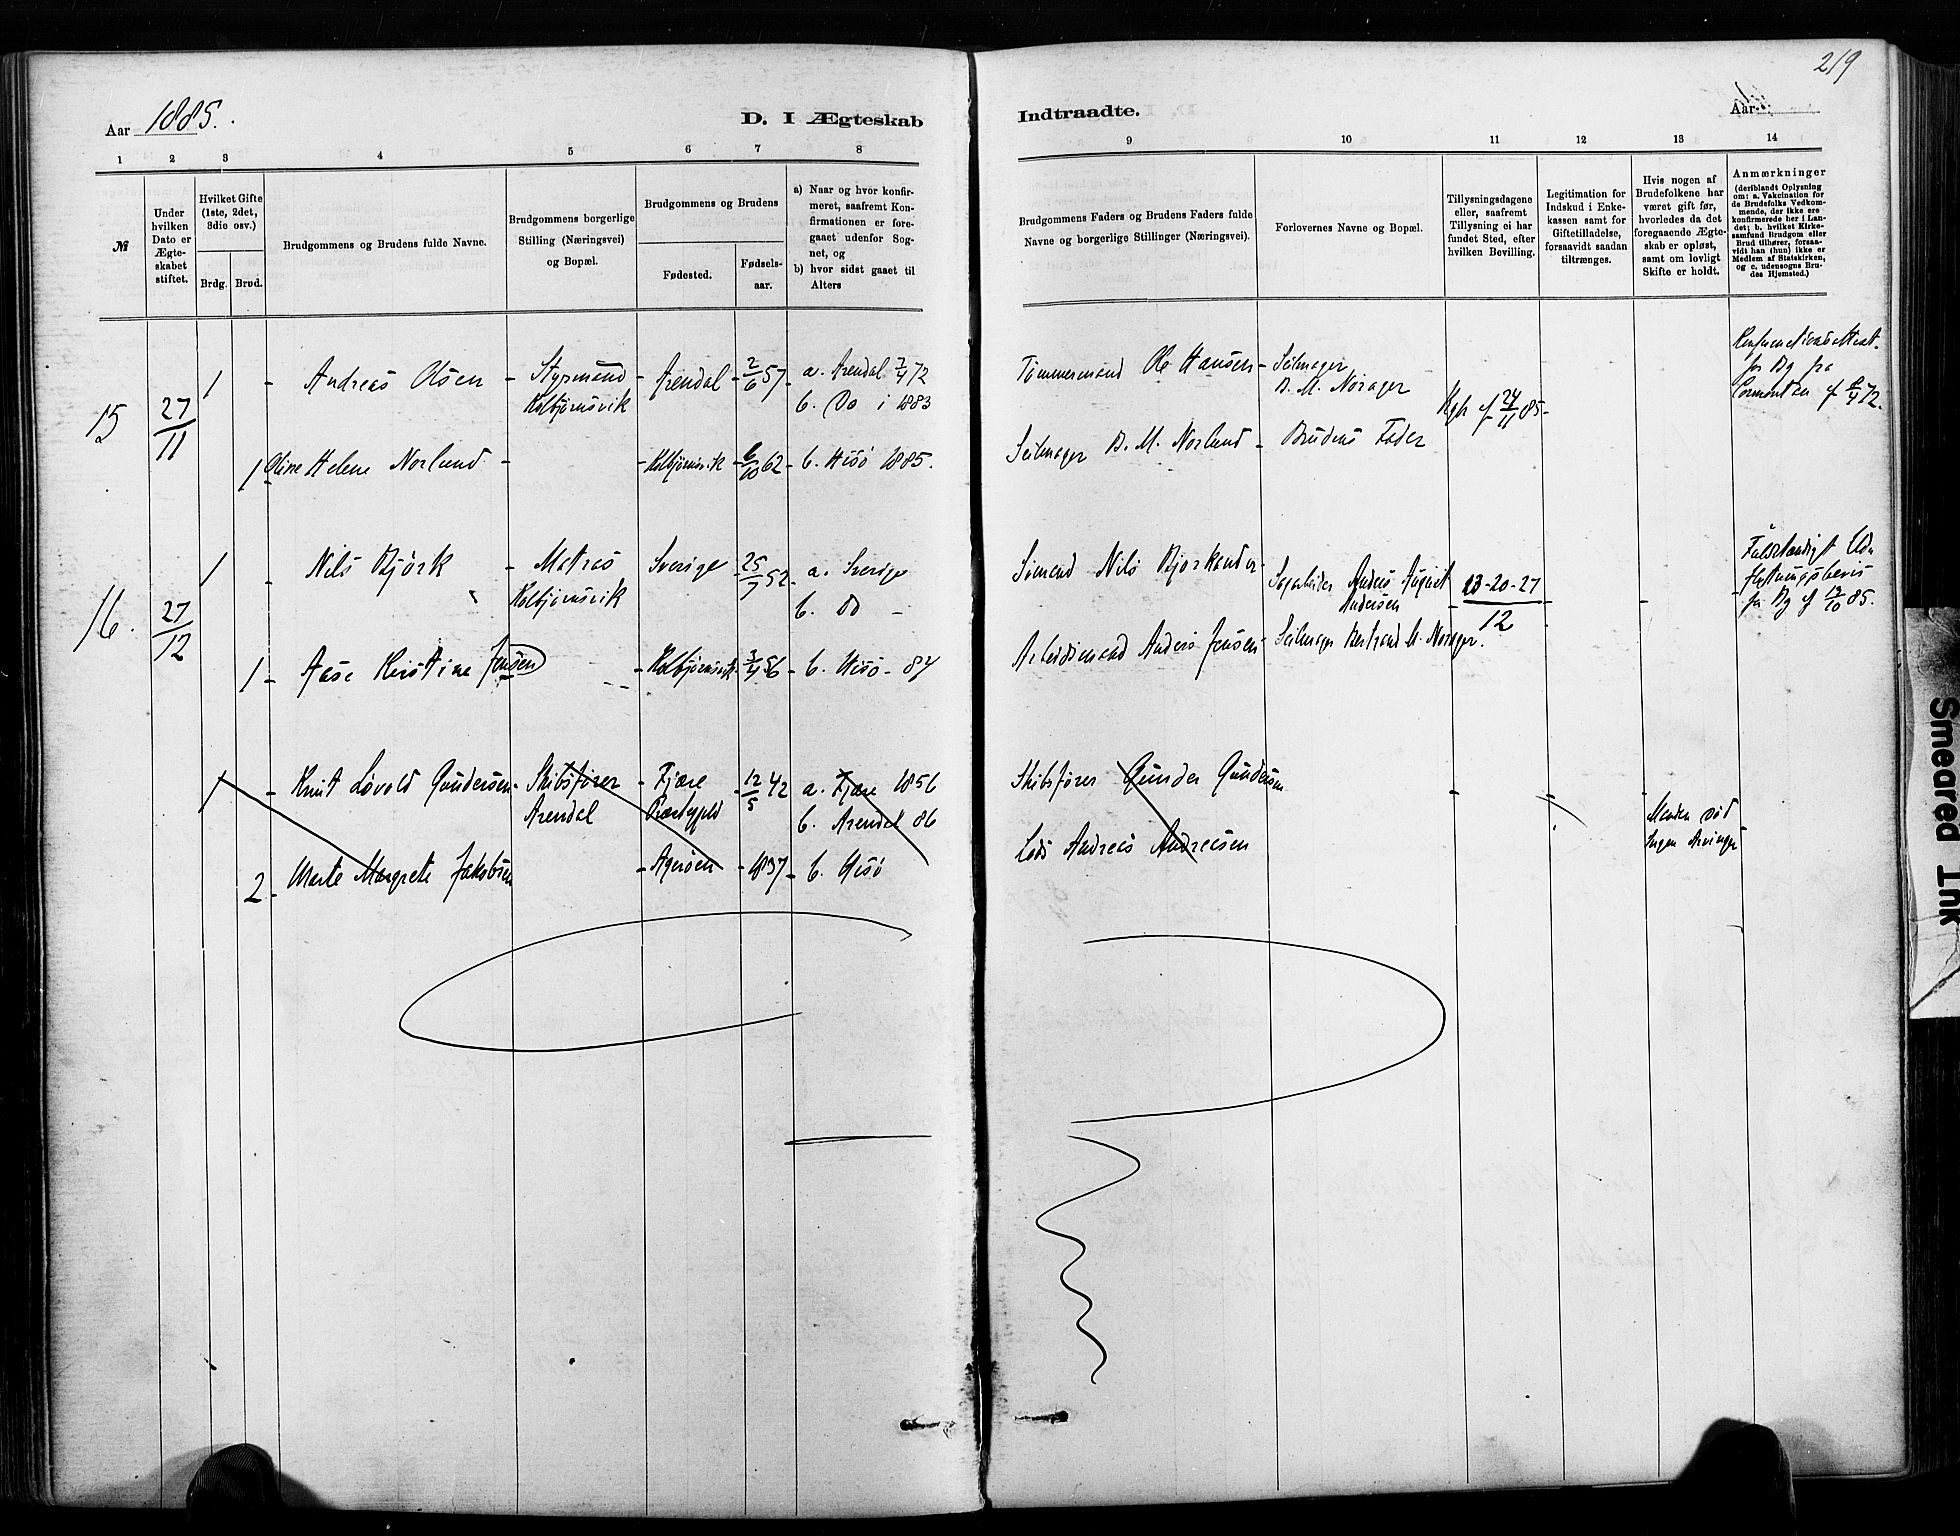 219
Aar 1885.
D. I Ægteskab
Indtraadte.
Aar
1 2 3 4 5 6 7 8
9 10 11 12 13 14
№
Under hvilken Dato er Ægteskabet stiftet.
Hvilket Gifte (1ste, 2det, 3die osv.)
Brdg. Brud.
Brudgommens og Brudens fulde Navne.
Brudgommens borgerlige Stilling (Næringsvei) og Bopæl.
Brudgommens og Brudens
Fødested.
Fødselsaar.
a) Naar og hvor konfirmeret, saafremt Konfirmationen er foregaaet udenfor Sognet, og
b) hvor sidst gaaet til Alters
Brudgommens Faders og Brudens Faders fulde Navne og borgerlige Stillinger (Næringsvei).
Forlovernes Navne og Bopæl.
Tillysningsdagene eller, saafremt Tillysning ei har fundet Sted, efter hvilken Bevilling.
Legitimation for Indskud i Enkekassen samt for Giftetilladelse, forsaavidt saadan tiltrænges.
Hvis nogen af Brudefolkene har været gift før, hvorledes da det foregaaende Ægteskab er opløst, samt om lovligt Skifte er holdt.
Anmærkninger
(deriblandt Oplysning om: a. Vakcination for de Brudefolks Vedkommende, der ikke ere konfirmerede her i Landet; b. hvilket Kirkesamfund Brudgom eller Brud tilhører, forsaavidt han (hun) ikke er Medlem af Statskirken, og c. udensogns Brudes Hjemsted.)
15 27/11 1 - Andreas Olsen - Styrmand Kolbjørnsvik - Arendal - 2/6 57 - a. Arendal 7/4 72
b. Do i 1883
Tømmermand Ole Hansen - Seilmager B. M. Norager
Kgb af 24/11 85 -
for Bg fra
1 Oline Helene Norlund - - Kolbjørnsvik - 6/10 62 - b. Hisø 1885.
Seilmager B. M. Norlund - Brudens Fader
16. 27/12 1 - Nils Bjørk - Matros Kolbjørnsvik Sverige - 25/7 52 - a. Sverige
b. Do -
Sømand Nils Bjørkander - Anders August Andersen
13-20-27/12
Fuldstændigt Udflytningsbevis for Bg af 19/10 85.
1 - Aase Kirstine Jensen - Kolbjørnsvik - 3/4 56 - b. Hisø - 84
Arbeidsmand Anders Jensen - Seilmager Bertrand M. Norager.
1 - Knut Løvold Gundersen - Skibsfører Arendal - Fjære Præstegjeld - 12/5 42 - a. Fjære 1856
b. Arendal 86
Skibsfører Gunder Gundersen
Manden død
Ingen Arvinger
2 - Marte Margrete Jakobsen - Agerøen - 1837 - b. Hisø
Lods Andreas Andreasen
Smeared Ink